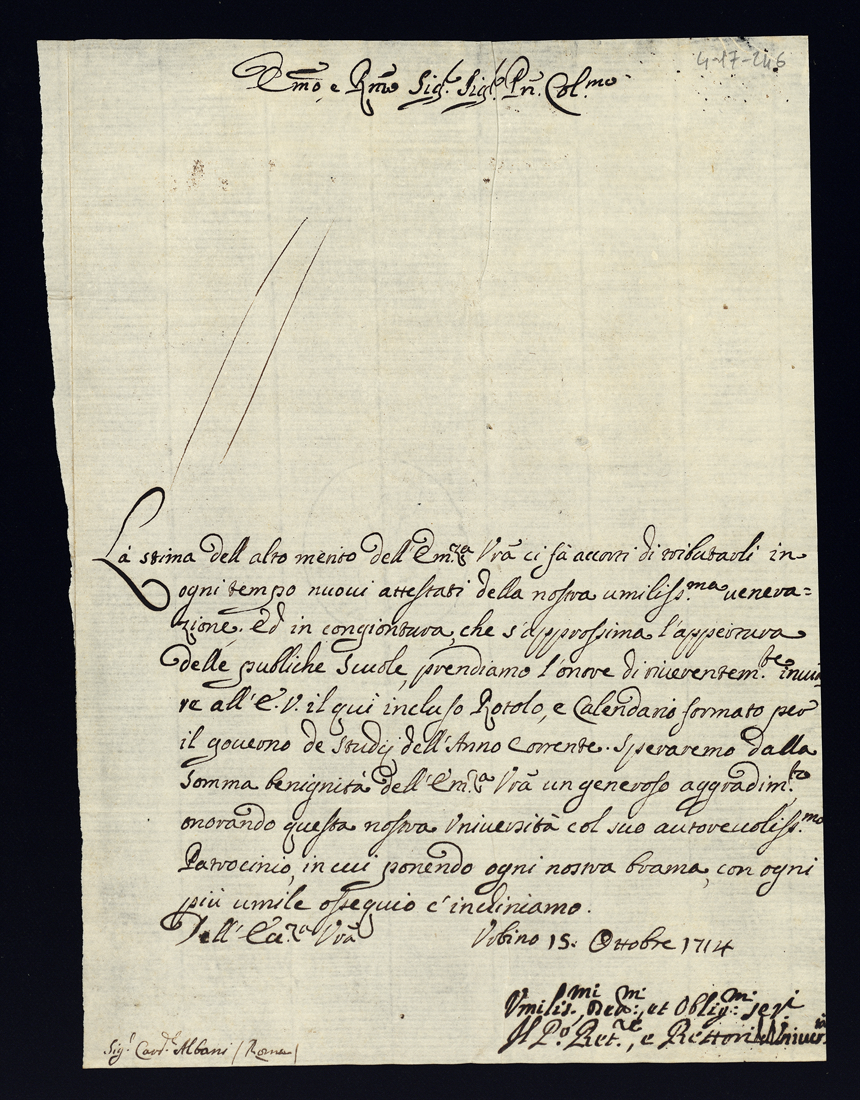 4-17-246
Emo, e Rmo Sigr. Sigr. Prn. Col.mo
La stima dell'alto merito dell'Em.za Vrã ci fà accorti di tributarli in
ogni tempo nuovi attestati della nostra umiliss.ma venera=
zione. Ed in congiontura, che s'approssima l'appertura
delle publiche Scuole, prendiamo l'onore di riverentem.te invia
re all'E. V. il quì incluso Rotolo, e Calendario formato per
il governo de Studij dell'Anno Corrente. Speraremo dalla
Somma benignità dell'Em.za Vrã un generoso aggradim.to
onorando questa nostra Università col suo autorevoliss.mo
Patrocinio, in cui ponendo ogni nostra brama, con ogni
più umile ossequio c'inchiniamo.
Dell'Em.za Vrã Urbino 15. Ottobre 1714
Umilis.mi Dev.mi, et Oblig.mi Servi
Il P.o Ret.re, e Rettori Univer.tà
Sigr. Card.le Albani (Roma)